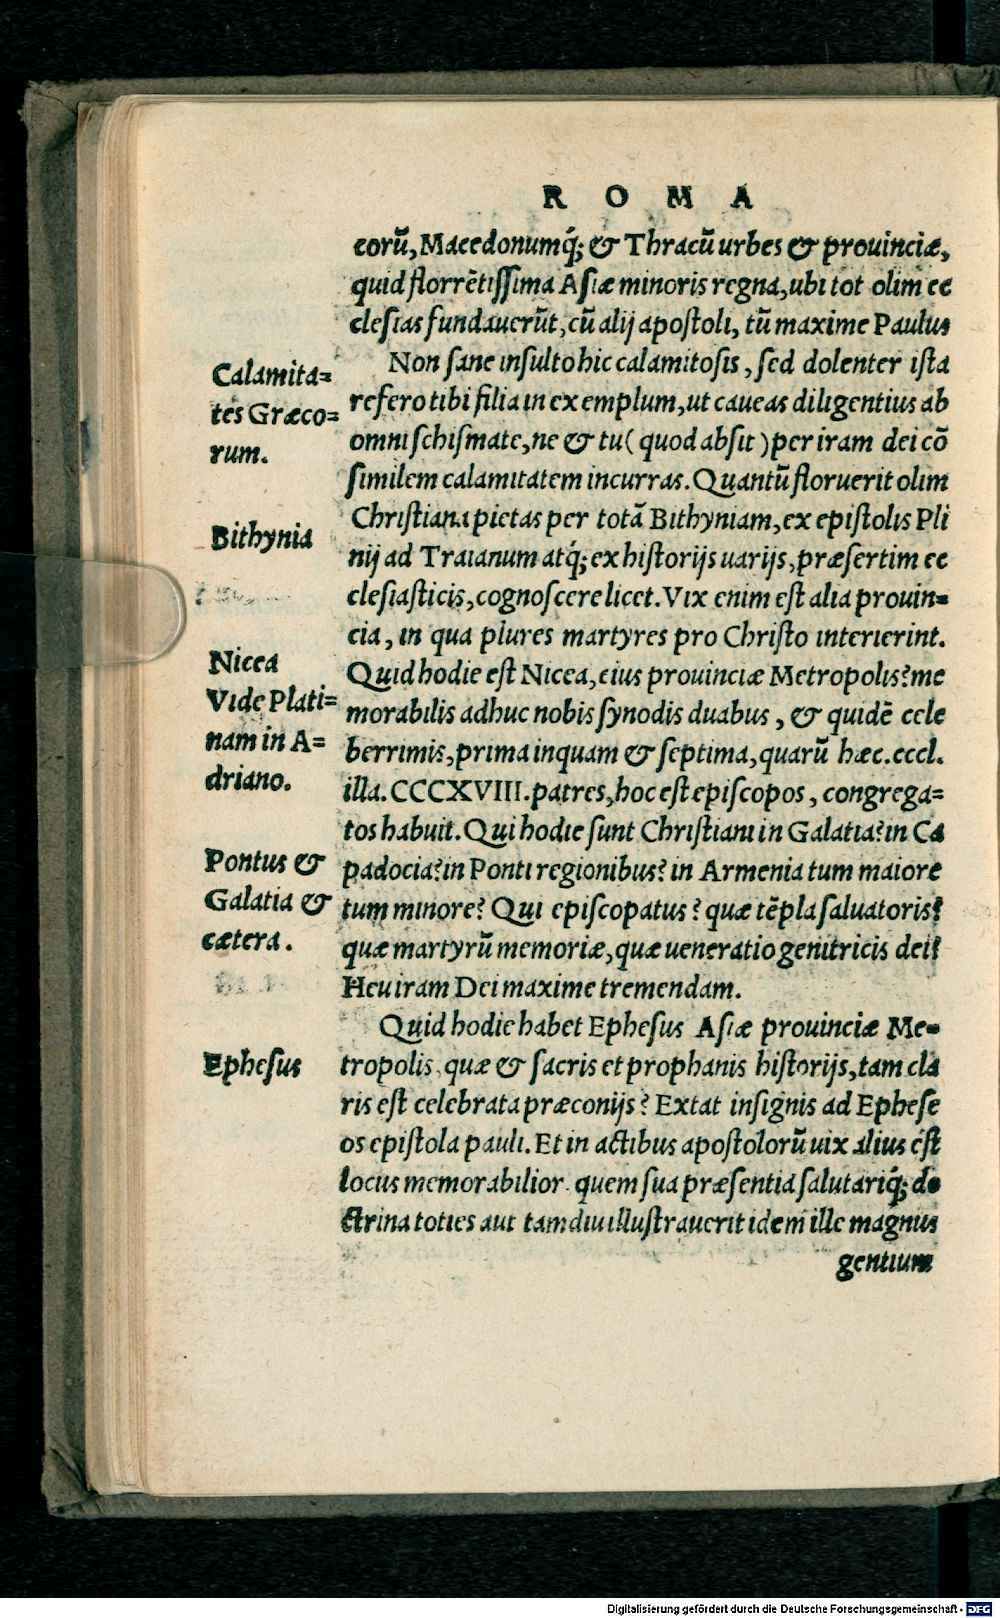 R O M A
corũ, Macedonumq́; & Thracũ urbes & prouinciæ,
quid florrẽtissima Asiæ minoris regna, ubi tot olim ec
clesias fundauerũt, cũ alij apostoli, tũ maxime Paulus
Non sane insulto hic calamitosis, sed dolenter ista
refero tibi filia in exemplum, ut caueas diligentius ab
omni schismate, ne & tu ( quod absit ) per iram dei cõ
similem calamitatem incurras. Quantũ floruerit olim
Christiana pietas per totã Bithyniam, ex epistolis Pli
nij ad Traianum atq́; ex historijs uarijs, præsertim ec
clesiasticis, cognoscere licet. Vix enim est alia prouin=
cia, in qua plures martyres pro Christo interierint.
Quid hodie est Nicea, eius prouinciæ Metropolis? me
morabilis adhuc nobis synodis duabus, & quidẽ cele
berrimis, prima inquam & septima, quarũ hæc. cccl.
illa. CCCXVIII. patres, hoc est episcopos, congrega=
tos habuit. Qui hodie sunt Christiani in Galatia? in Ca
padocia? in Ponti regionibus? in Armenia tum maiore
tum minore? Qui episcopatus? quæ tẽpla saluatoris?
quæ martyrũ memoriæ, quæ ueneratio genitricis dei?
Heu iram Dei maxime tremendam.
Quid hodie habet Ephesus Asiæ prouinciæ Me=
tropolis, quæ & sacris et prophanis historijs, tam cla
ris est celebrata præconijs? Extat insignis ad Ephese
os epistola pauli. Et in actibus apostolorũ uix alius est
locus memorabilior. quem sua præsentia salutariq́; do
ctrina toties aut tamdiu illustrauerit idem ille magnus
gentium
Calamita=
tes Græco=
rum.
Bithynia
Nicea
Vide Plati=
nam in A=
driano.
Pontus &
Galatia &
cætera.
Ephesus
Digitalisierung gefördert durch die Deutsche Forschungsgemeinschaft - DFG